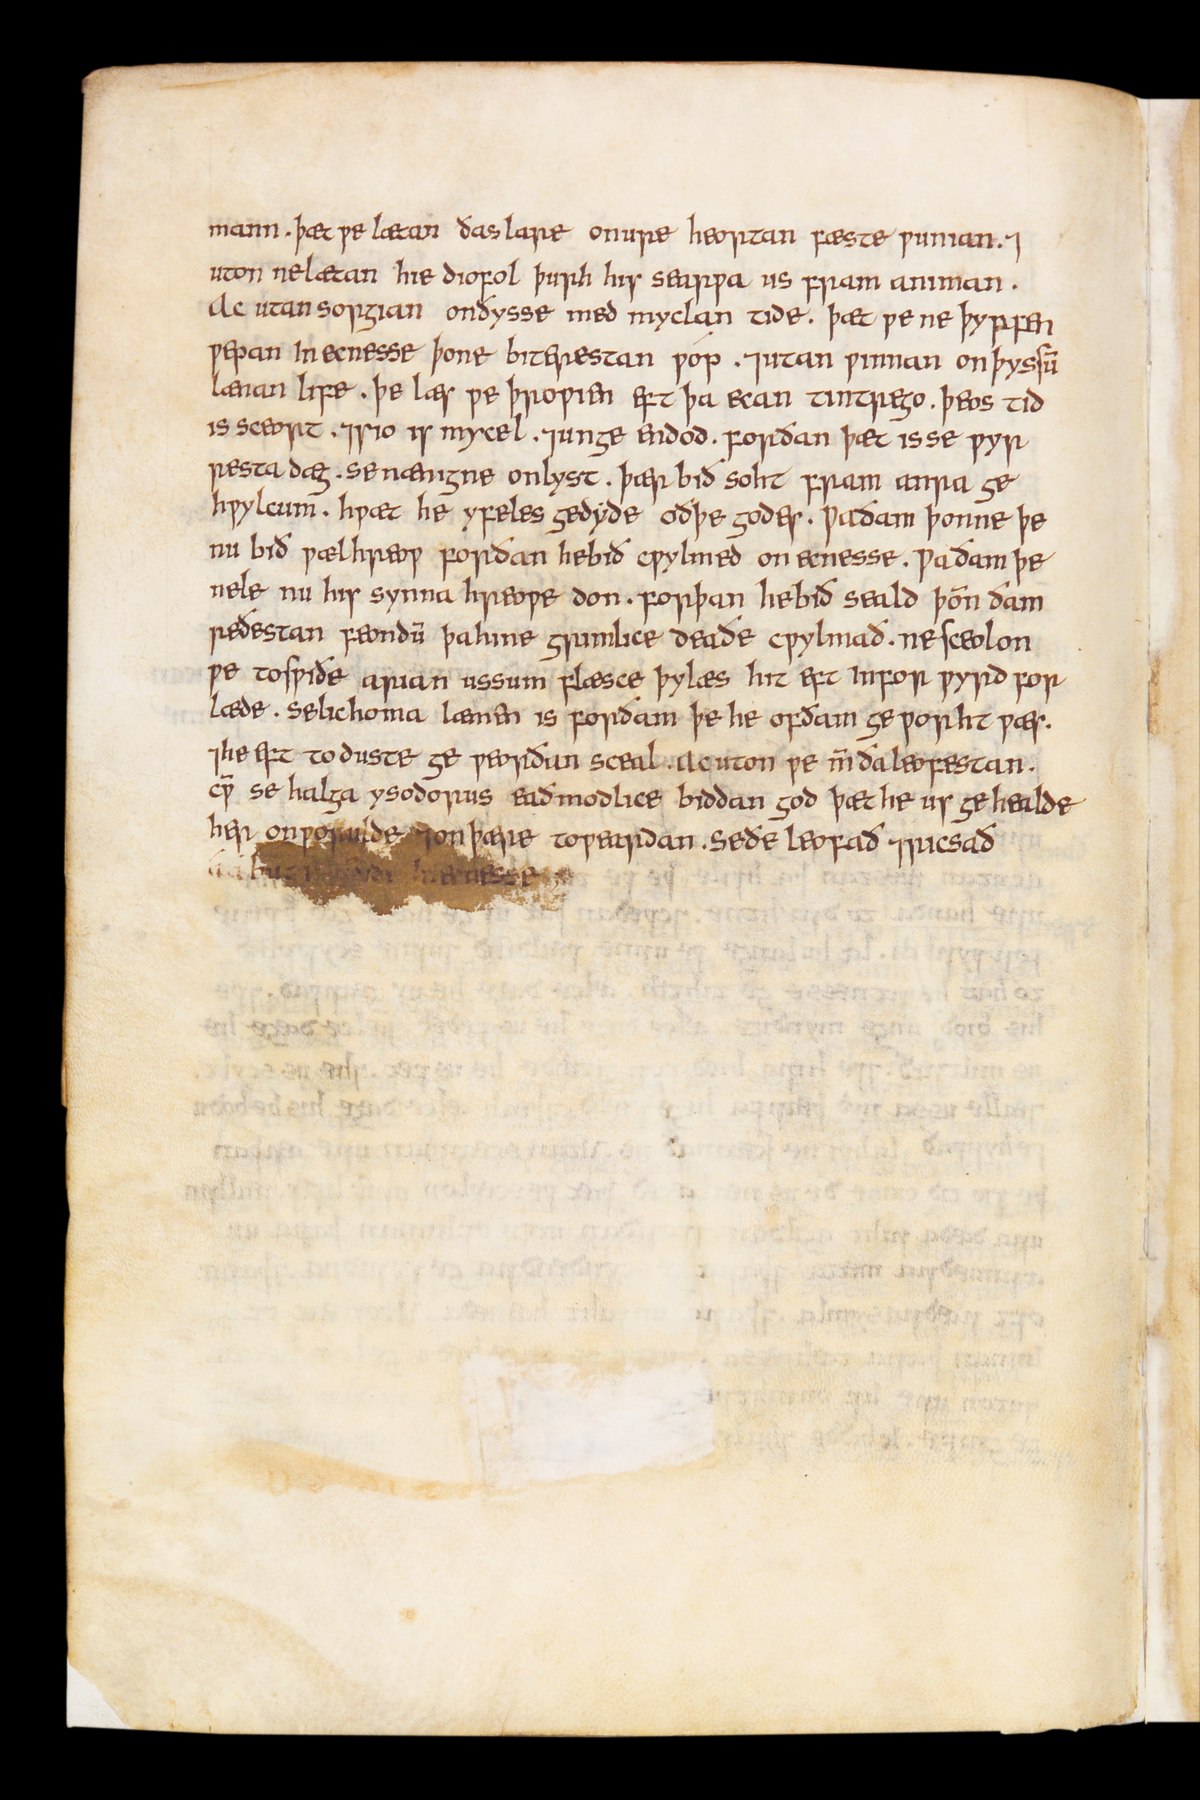 mann. þæt ƿe lætan ðas lare on ure heortan fæste ƿunian. ⁊
uton ne lætan hie diofol þurh his searƿa us fram animan.
Ac utan sorgian on ðysse med myclan tide. þæt ƿe ne þyrfen
ƿepan in ecnesse þone biterestan ƿóp. ⁊utan ƿinnan on þyssū
lænan life. þe læs ƿe þroƿien eft þa ecan tintrego. þeos tid
is sceort. ⁊sio is mycel. ⁊unge endod. forðan þæt is se ƿyr
resta dæg. se nænigne onlyst. þær bið soht fram anra ge
hƿylcum. hƿæt he yfeles gedyde oðþe godes. ƿa ðam þonne þe
nu bið ƿælhreoƿ forðan he bið cƿylmed on ecnesse. ƿa ðam þe
nele nu his synna hreoƿe don. forþan he bið seald þōn ðam
reðestan feondū þa hine grimlice deaðe cƿylmað. ne sceolon
ƿe to sƿiðe arian ussum flæsce þy læs hit eft in for ƿyrd for
læde. se lichoma lænen is forðam þe he of ðam geƿorht ƿæs.
⁊he eft to duste geƿeorðan sceal. Ac uton ƿe m̄ ða leofestan.
cƿ̄ se halga ysodorus eadmodlice biddan god þæt he us gehealde
her on ƿorulde ⁊on þære toƿeardan. se ðe leofað ⁊ricsað
in ecnesse